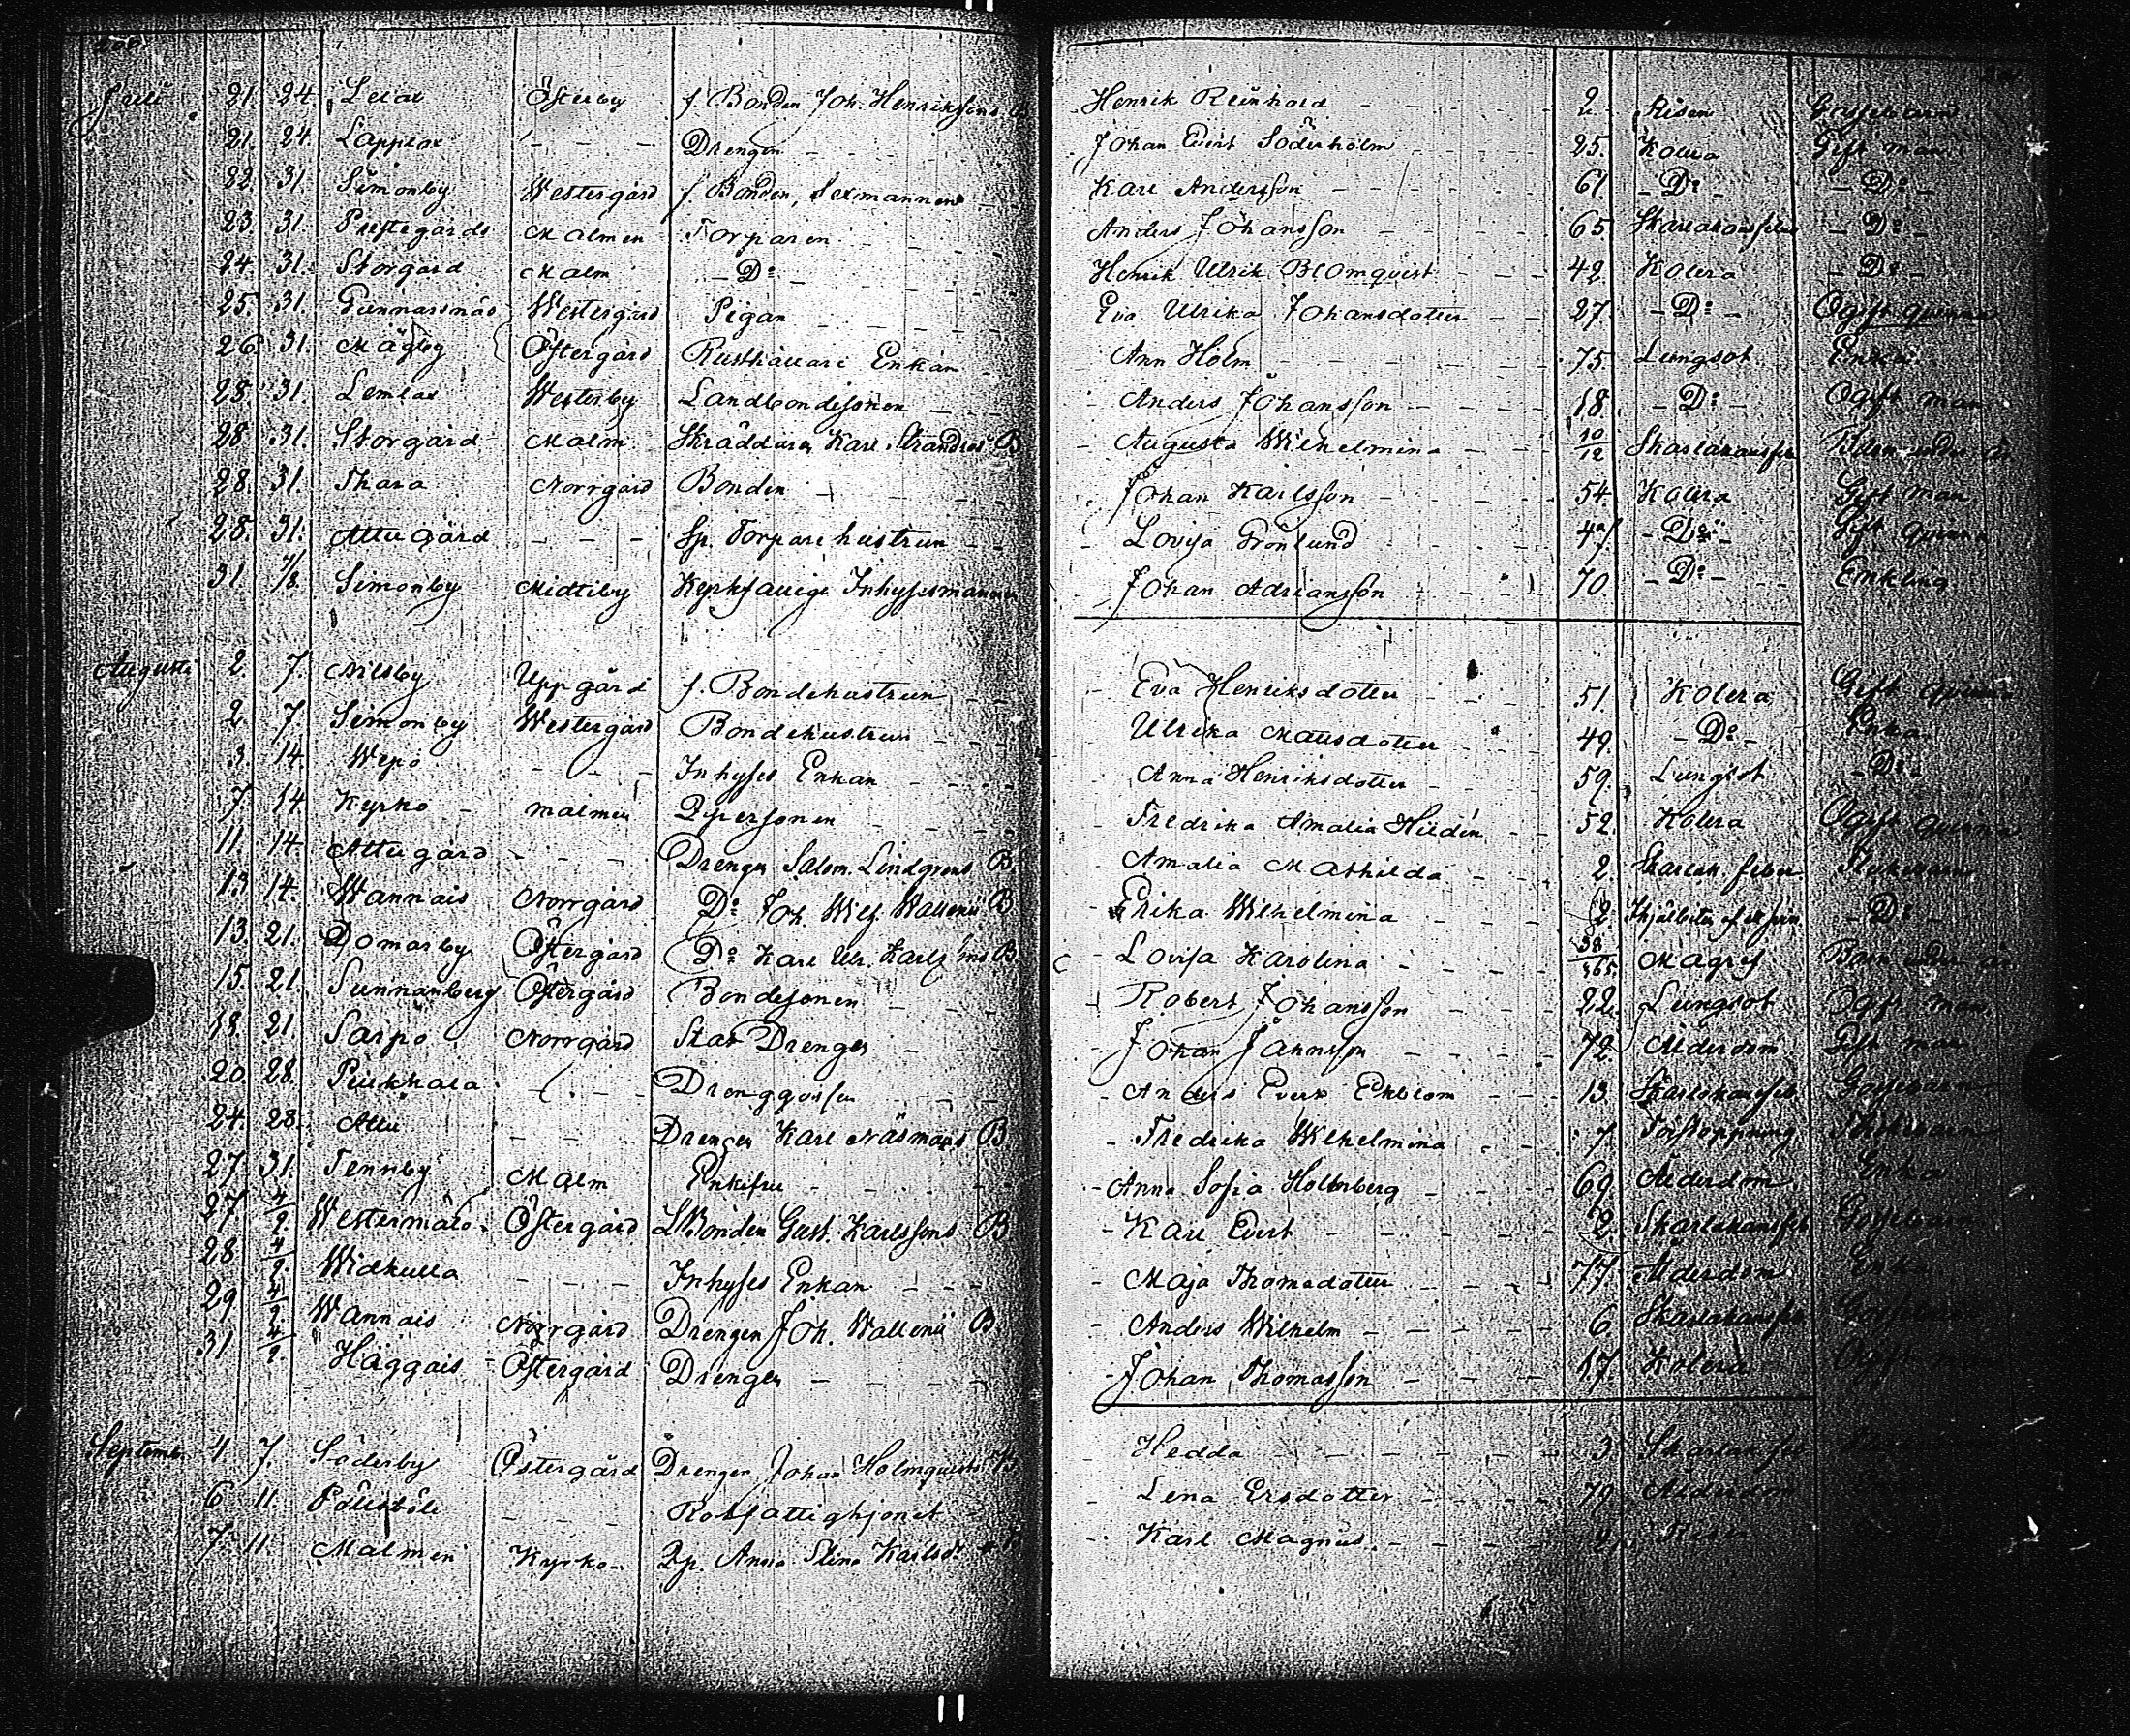 Juli 21. 24. Lelax Österby f. Bonden Joh. Henrikssons B Henrik Reinhold 2 Risen Gossebarn
21. 24. Lapplax Drengen Johan Evert Söderholm 25. Kolera Gift man
22. 31. Simonby Westergård f. Bonden, Sexmannen Karl Andersson 61. D:o D:o
23. 31. Prestegårds Malmen Torparen Anders Johansson 65. Skarlakansfeber D:o
24. 31. Storgård Malm D:o Henrik Ulrik Blomqvist 42. Kolera D:o
25. 31. Gunnarsnäs Westergård Pigan Eva Ulrika Johansdotter 27. D:o Ogift qvinna
26. 31. Mågby Östergård Rusthållare Enkan Ann Holm 75. Lungsot Enka
28. 31. Lemlax Westerby Landbondesonen Anders Johansson 18. D:o Ogift man
28. 31. Storgård Malm Skräddaren Karl Strandros B Augusta Wilhelmina 10/12 Skarlakansfeb Barn under
28. 31. Thara Norrgård Bonden Johan Karlsson 54. Kolera Gift man
28. 31. Attu gård Sp. Torpare hustrun Lovisa Grönlund 47 D:o Gift qvinna
31 1/8 Simonby Midtiby Kyrkfattige Inhysesmannen Johan Adriansson 70 D:o Enkling
Augusti 2. 7. Nilsby Uppgård f. Bondehustrun Eva Henriksdotter 51 Kolera Gift qvinna
2 7. Simonby Westergård Bondehustrun Ulrika Matsdotter 49. D:o Enka
3. 14. Wepo Inhyses Enkan Anna Henriksdotter 59. Lungsot D:o
7. 14 Kyrko malmen Qvpersonen Fredrika Amalia Hildén 52. Kolera Ogift qvinna
11. 14. Attu gård Drengen Salom. Lindgrens B. Amalia Mathilda 2. Skarlak. feber Flickebarn
13 14. Wannais Norrgård D:o Joh. Wilh. Wallenii B Erika Wilhelmina 2 D:o
13. 21. Domarby Östergård D:o Karl Ulr. Karlssons B. Lovisa Karolina 38/365. Magref Barn under
15. 21. Sunnanberg Östergård Bondesonen Robert Johansson 22. Lungsot Ogift man
18. 21 Sarpo Norrgård Stat Drengen Johan Jansson 72. Ålderdom Gift man
20. 28. Piukkala Drenggossen Anders Evert Ekblom 13. Skarlakansfeb Gossebarn
24. 28. Attu Drengen Karl Näsmans B Fredrika Wilhelmina 7 Förstoppning Flickebarn
27 31. Tennby Malm Enkefru Anna Sofia Hollnberg 69. Ålderdom Enka
27 4/9. Westermälo Östergård L.Bonden Gust. Karlssons B Karl Evert 2. Skarlakansfeb Gossebarn
28 4/9. Widkulla Inhyses Enkan Maja Thomasdotter 77. Ålderdom Enka
29 4/9. Wannais Norrgård Drengen Joh. Wallenii B Anders Wilhelm 6 Skarlakansfeb
31 4/9. Häggais Östergård Drengen Johan Thomasson 17. Kolera Ogift
Septemb. 4 7. Söderby Östergård Drengen Johan Holmqvists B. Hedda 3 Skarlakansfeb
6 11. Rotfattighjonet Lena Ersdotter 79. Ålderdom
7. 11 Malmen Kyrko- Qp. Anna Stina Karlsd:r Karl Magnus.